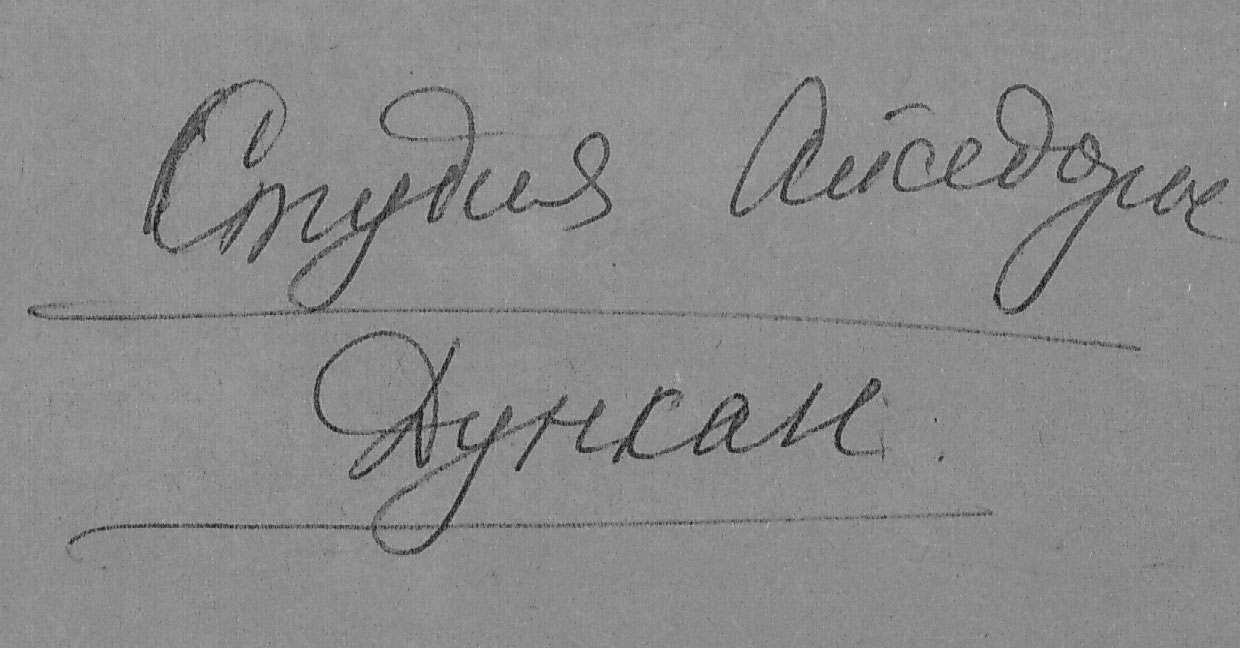 Студия Айседоры
Дункан.